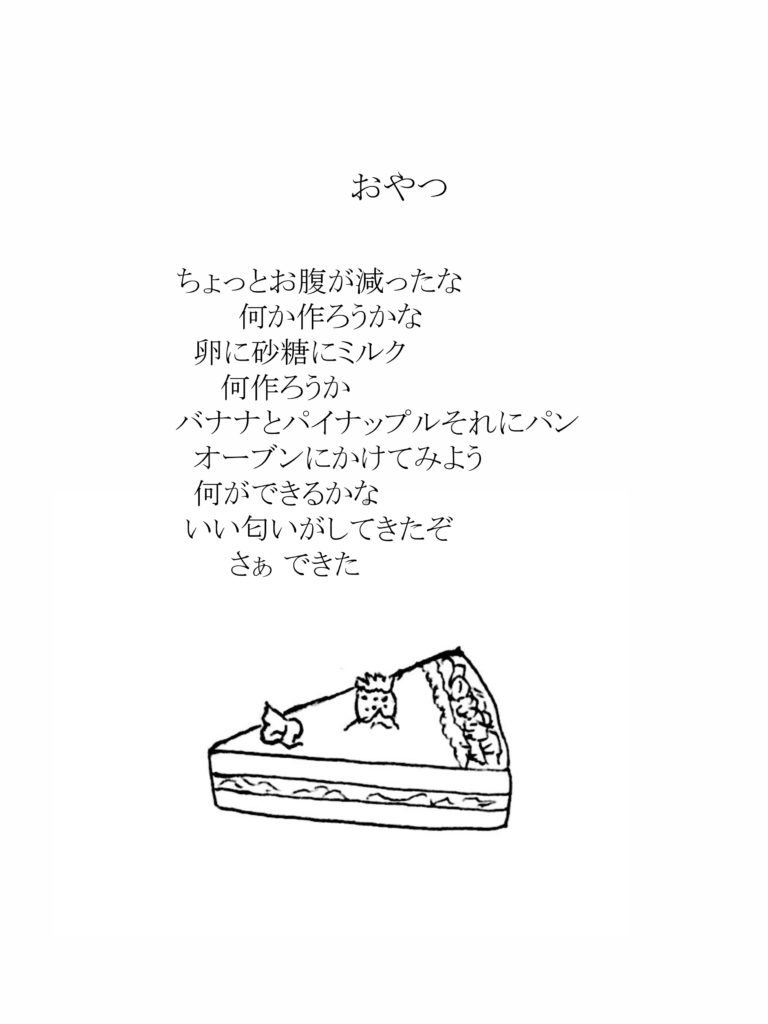 おやつ
ちょっとお腹が減ったな
何か作ろうかな
卵に砂糖にミルク
何作ろうか
バナナとパイナップルそれにパン
オーブンにかけてみよう
何ができるかな
いい匂いがしてきたぞ
さぁ できた